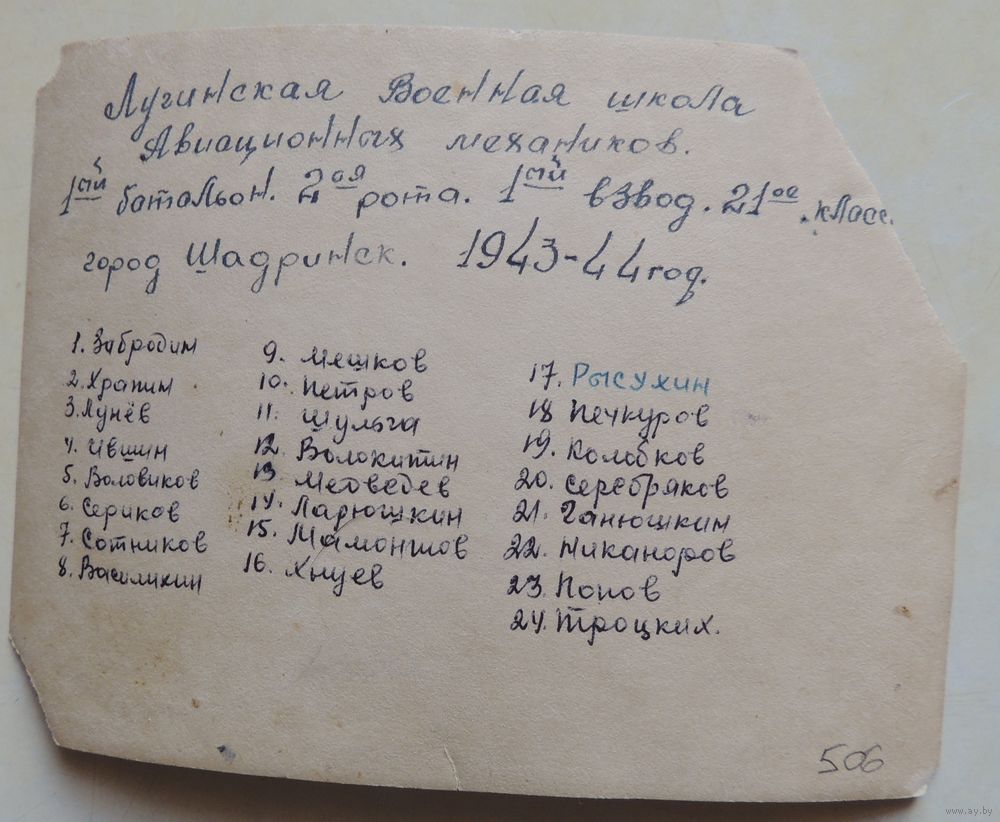 Лугинская Военная школа
Авиационных механиков.
1ый батальон. 2ая рота. 1ый взвод. 21ое. класс.
город Шадринск. 1943-44 год.
1. Забродин
2. Храпин
3. Лунёв
4. Ившин
5. Воловиков
6. Сериков
7. Сотников
8. Василихин
9. Мешков
10. Петров
11. Шульга
12. Волокитин
13. Медведев
14. Ларюшкин
15.
16.
17. Рысухин
18 Печкуров
19. Колобков
20. Серебряков
21. Ганюшкин
22. Никаноров
23. Попов
24. Троцких.
506
www.ay.by